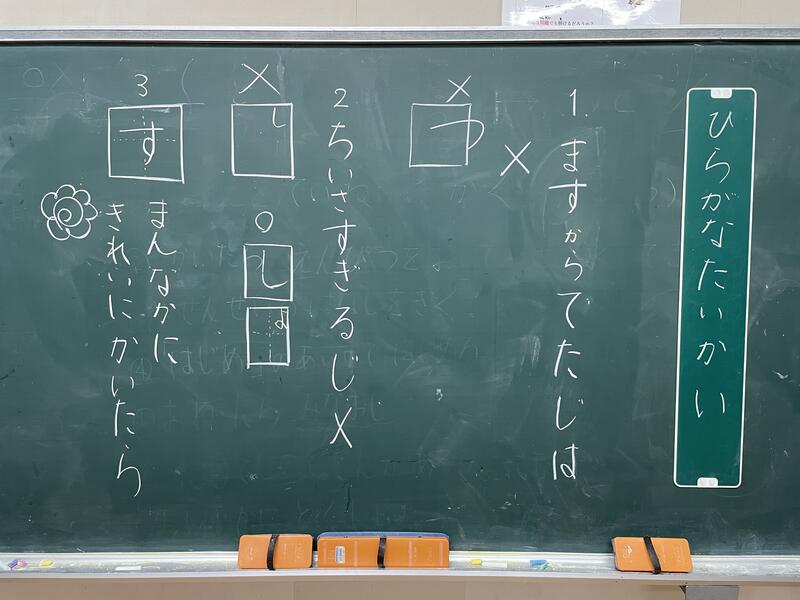 ひらがなたいかい
1. ますからでたじは
×
×
つ
2 ちいさすぎるじ×
×
し
○
し
ょ
3
す
まんなかに
きれいにかいたら